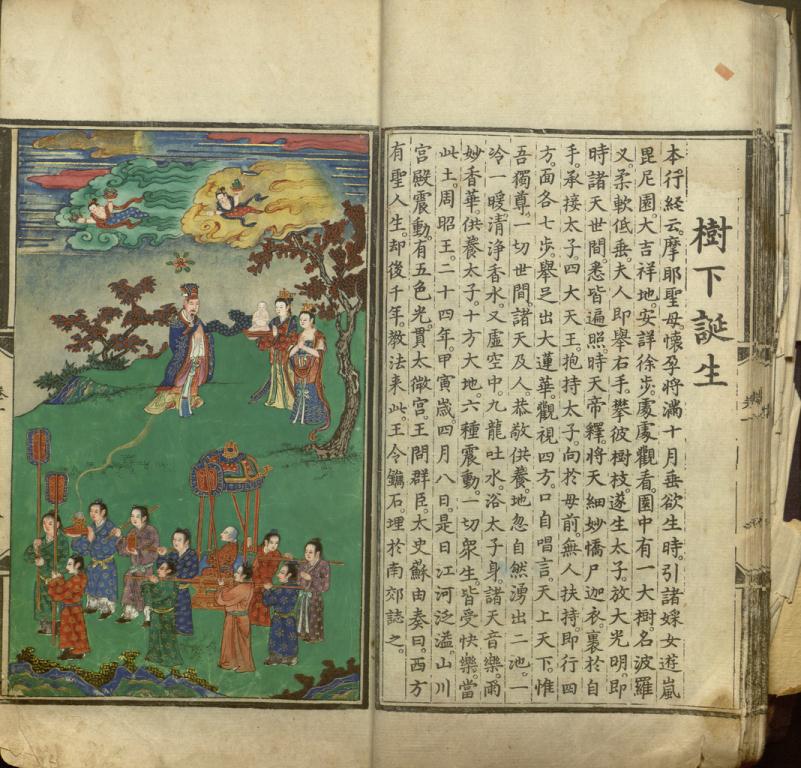 樹下誕生
本行經云。摩耶聖母懷孕將滿十月垂欲生時。引諸婇女遊嵐
毘尼園。大吉祥地。安詳徐步。處處觀看。園中有一大樹。名波羅
叉。柔軟低垂。夫人即舉右手。攀彼樹枝。遂生太子。放大光明。即
時諸天世間。悉皆遍照。時天帝釋。將天細妙憍尸迦衣。裹於自
手。承接太子。四大天王。抱持太子。向於母前。無人扶持。即行四
方。面各七步。舉足出大蓮華。觀視四方。口自唱言。天上天下。惟
吾獨尊。一切世間。諸天及人。恭敬供養。地忽自然湧出二池。一
冷一暖。清淨香水。又虛空中。九龍吐水。浴太子身。諸天音樂。雨
妙香華。供養太子。十方大地。六種震動。一切衆生。皆受快樂。當
此土。周昭王。二十四年。甲寅歲。四月八日。是日江河泛溢。山川
宮殿震動。有五色光。貫太微宮。王問群臣。太史蘇由奏曰。西方
有聖人生。却後千年。教法来此。王令鐫石。埋於南郊誌之。